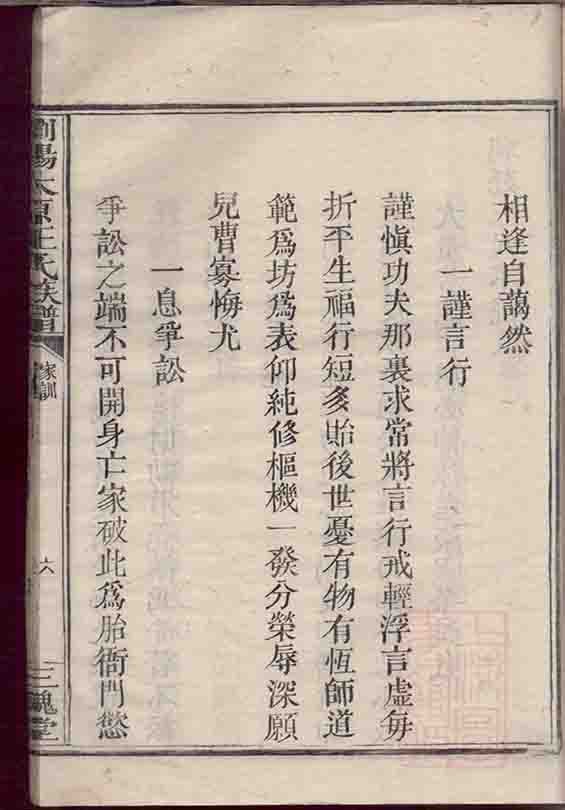 相逢自藹然
一謹言行
謹愼功夫那裏求常將言行戒輕浮言虛每
折平生福行短多貽後世憂有物有恆師道
範爲坊爲表仰純修樞機一發分榮辱深願
兒曹寡悔尤
一息爭訟
爭訟之端不可開身亡家破此爲胎衙門愁
瀏陽太原王氏族譜
家訓
六
三槐堂